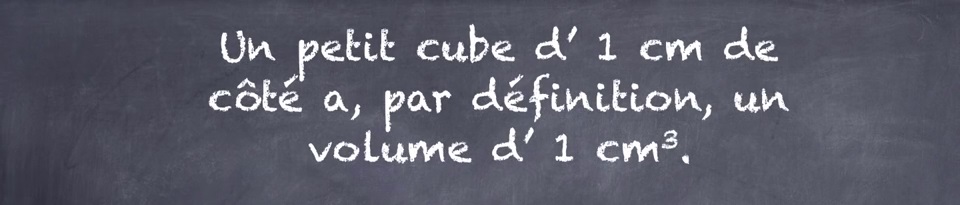 Un petit cube d' 1 cm de
côté a, par définition, un
volume d' 1 cm³.